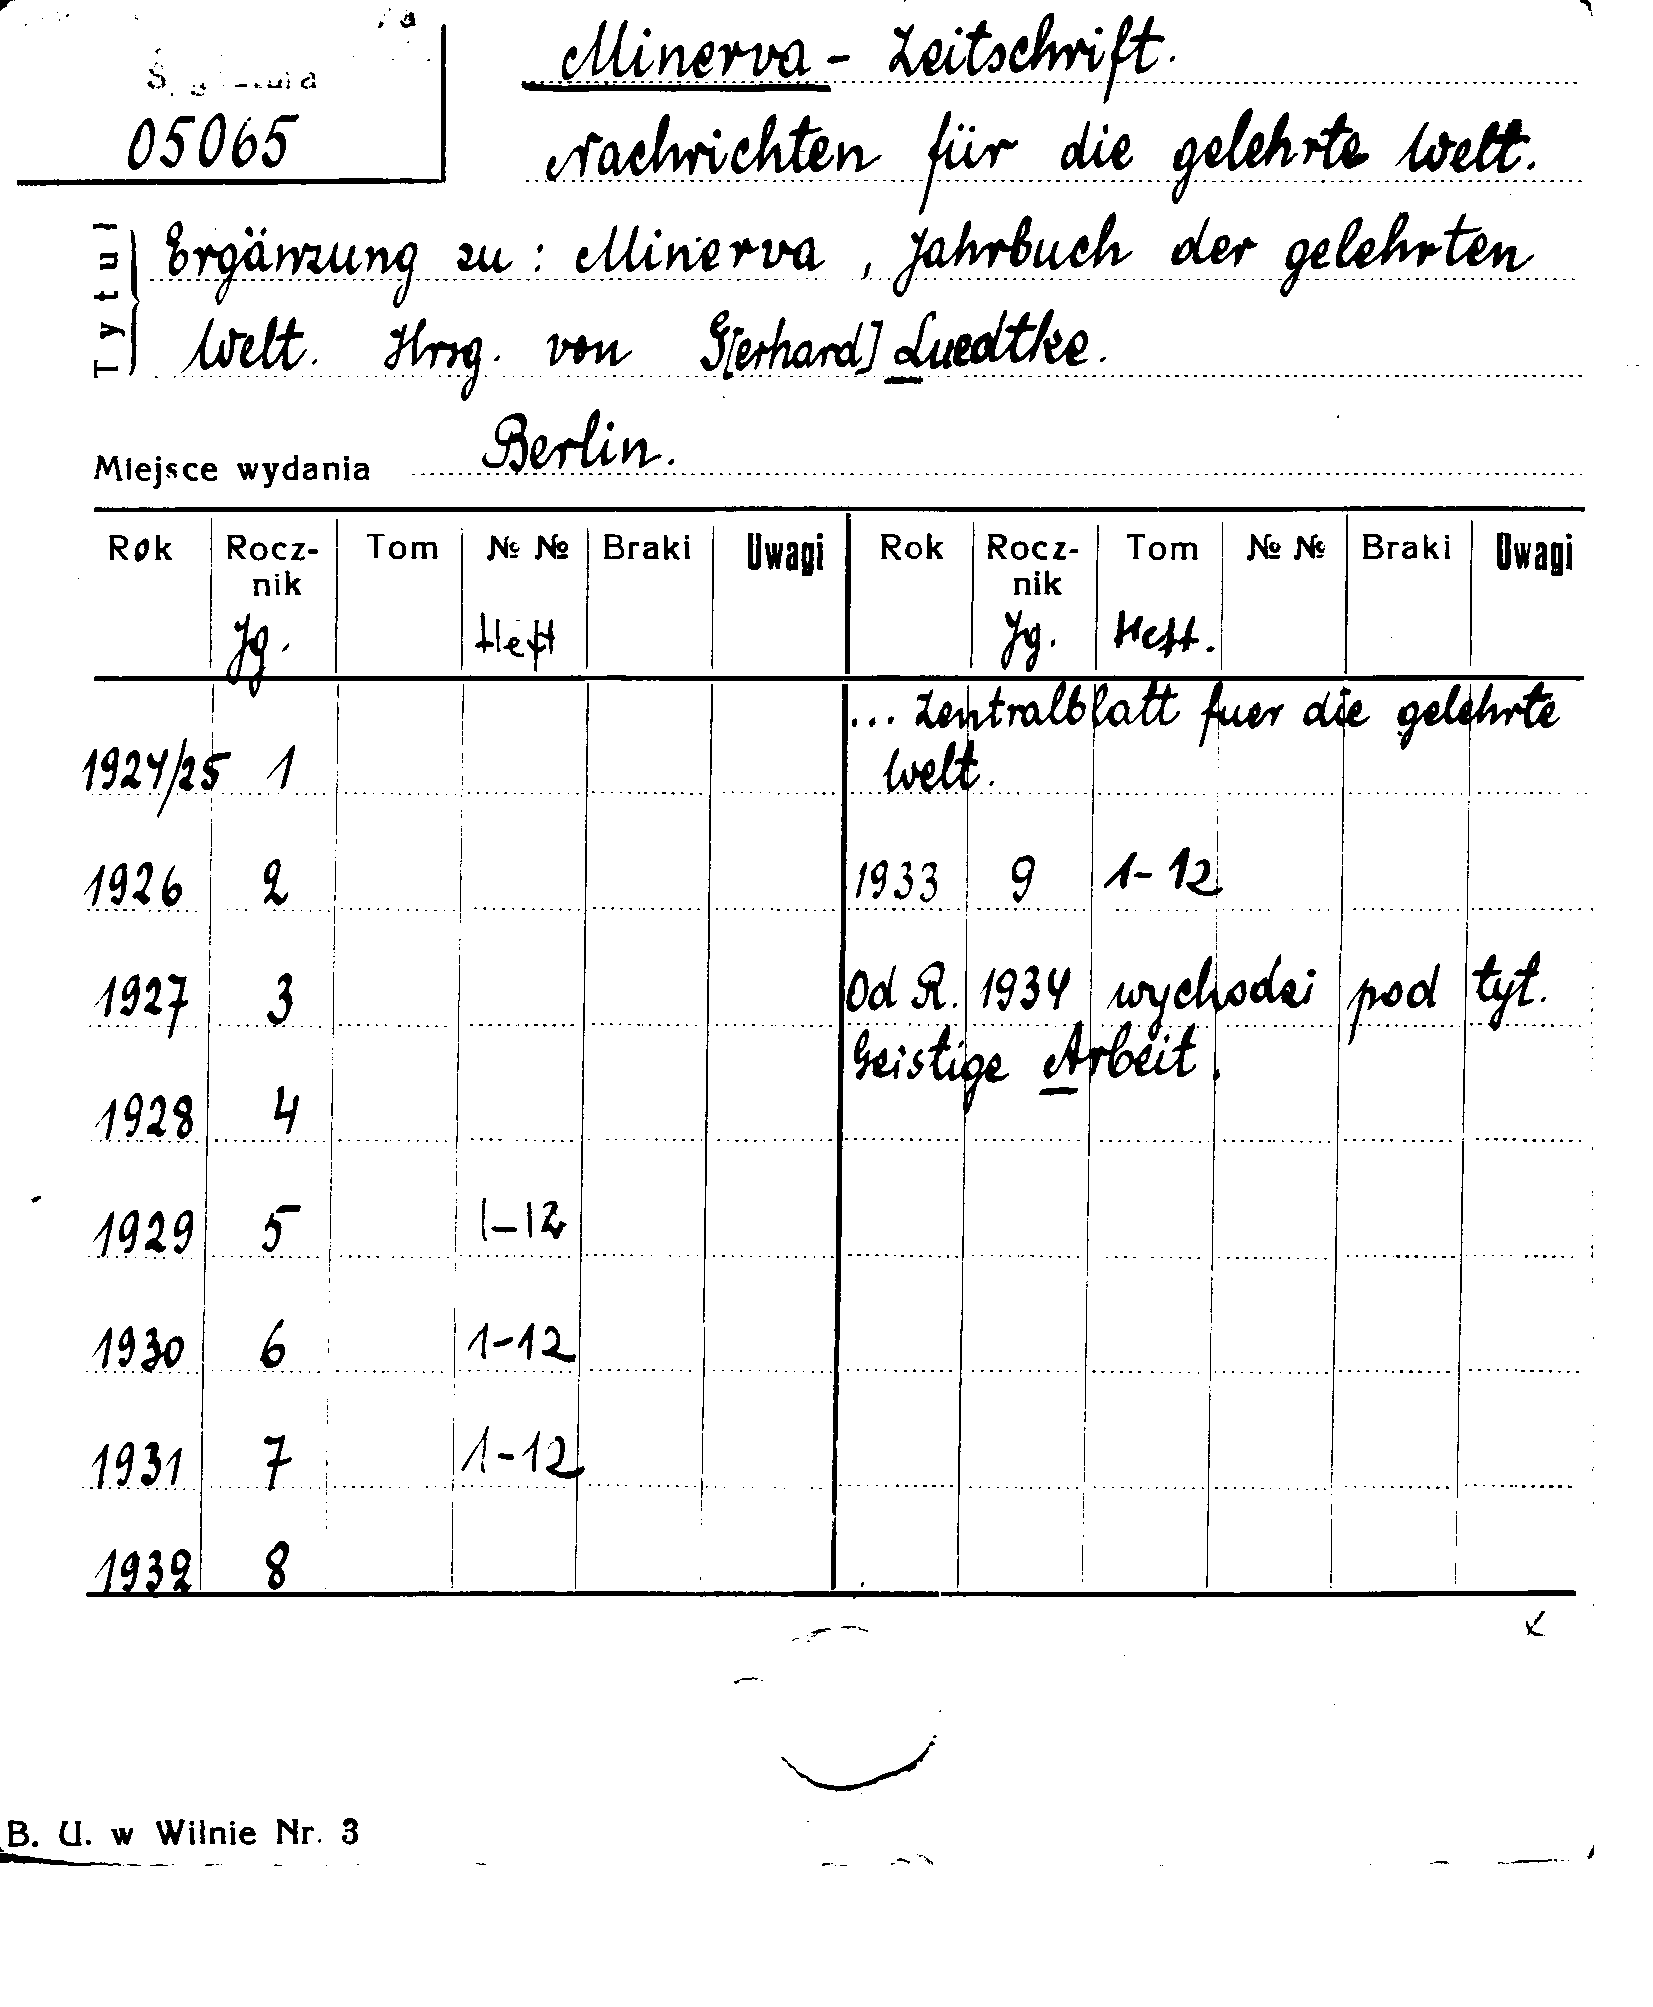 05065
Minerva - Zeitschrift.
Nachrichten für die gelehrte Welt.
Tytuł
Ergänzung zu : Minerva , Jahrbuch der gelehrten
Welt. Hrsg. von G[erhard] Luedtke.
Miejsce wydania Berlin.
Rok Rocz- Tom № № Braki Uwagi Rok Rocz- Tom № № Braki Uwagi
nik nik
Jg. Heft Jg. Heft.
... Zentralblatt fuer die gelehrte
1924/25 1 Welt.
1926 2 1933 9 1-12
1927 3 Od R. 1934 wychodzi pod tyt.
Geistige Arbeit.
1928 4
1929 5 1-12
1930 6 1-12
1931 7 1-12
1932 8
B. U. w Wilnie Nr. 3